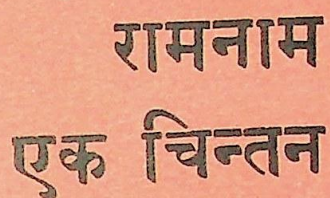 रामनाम
एक चिन्तन